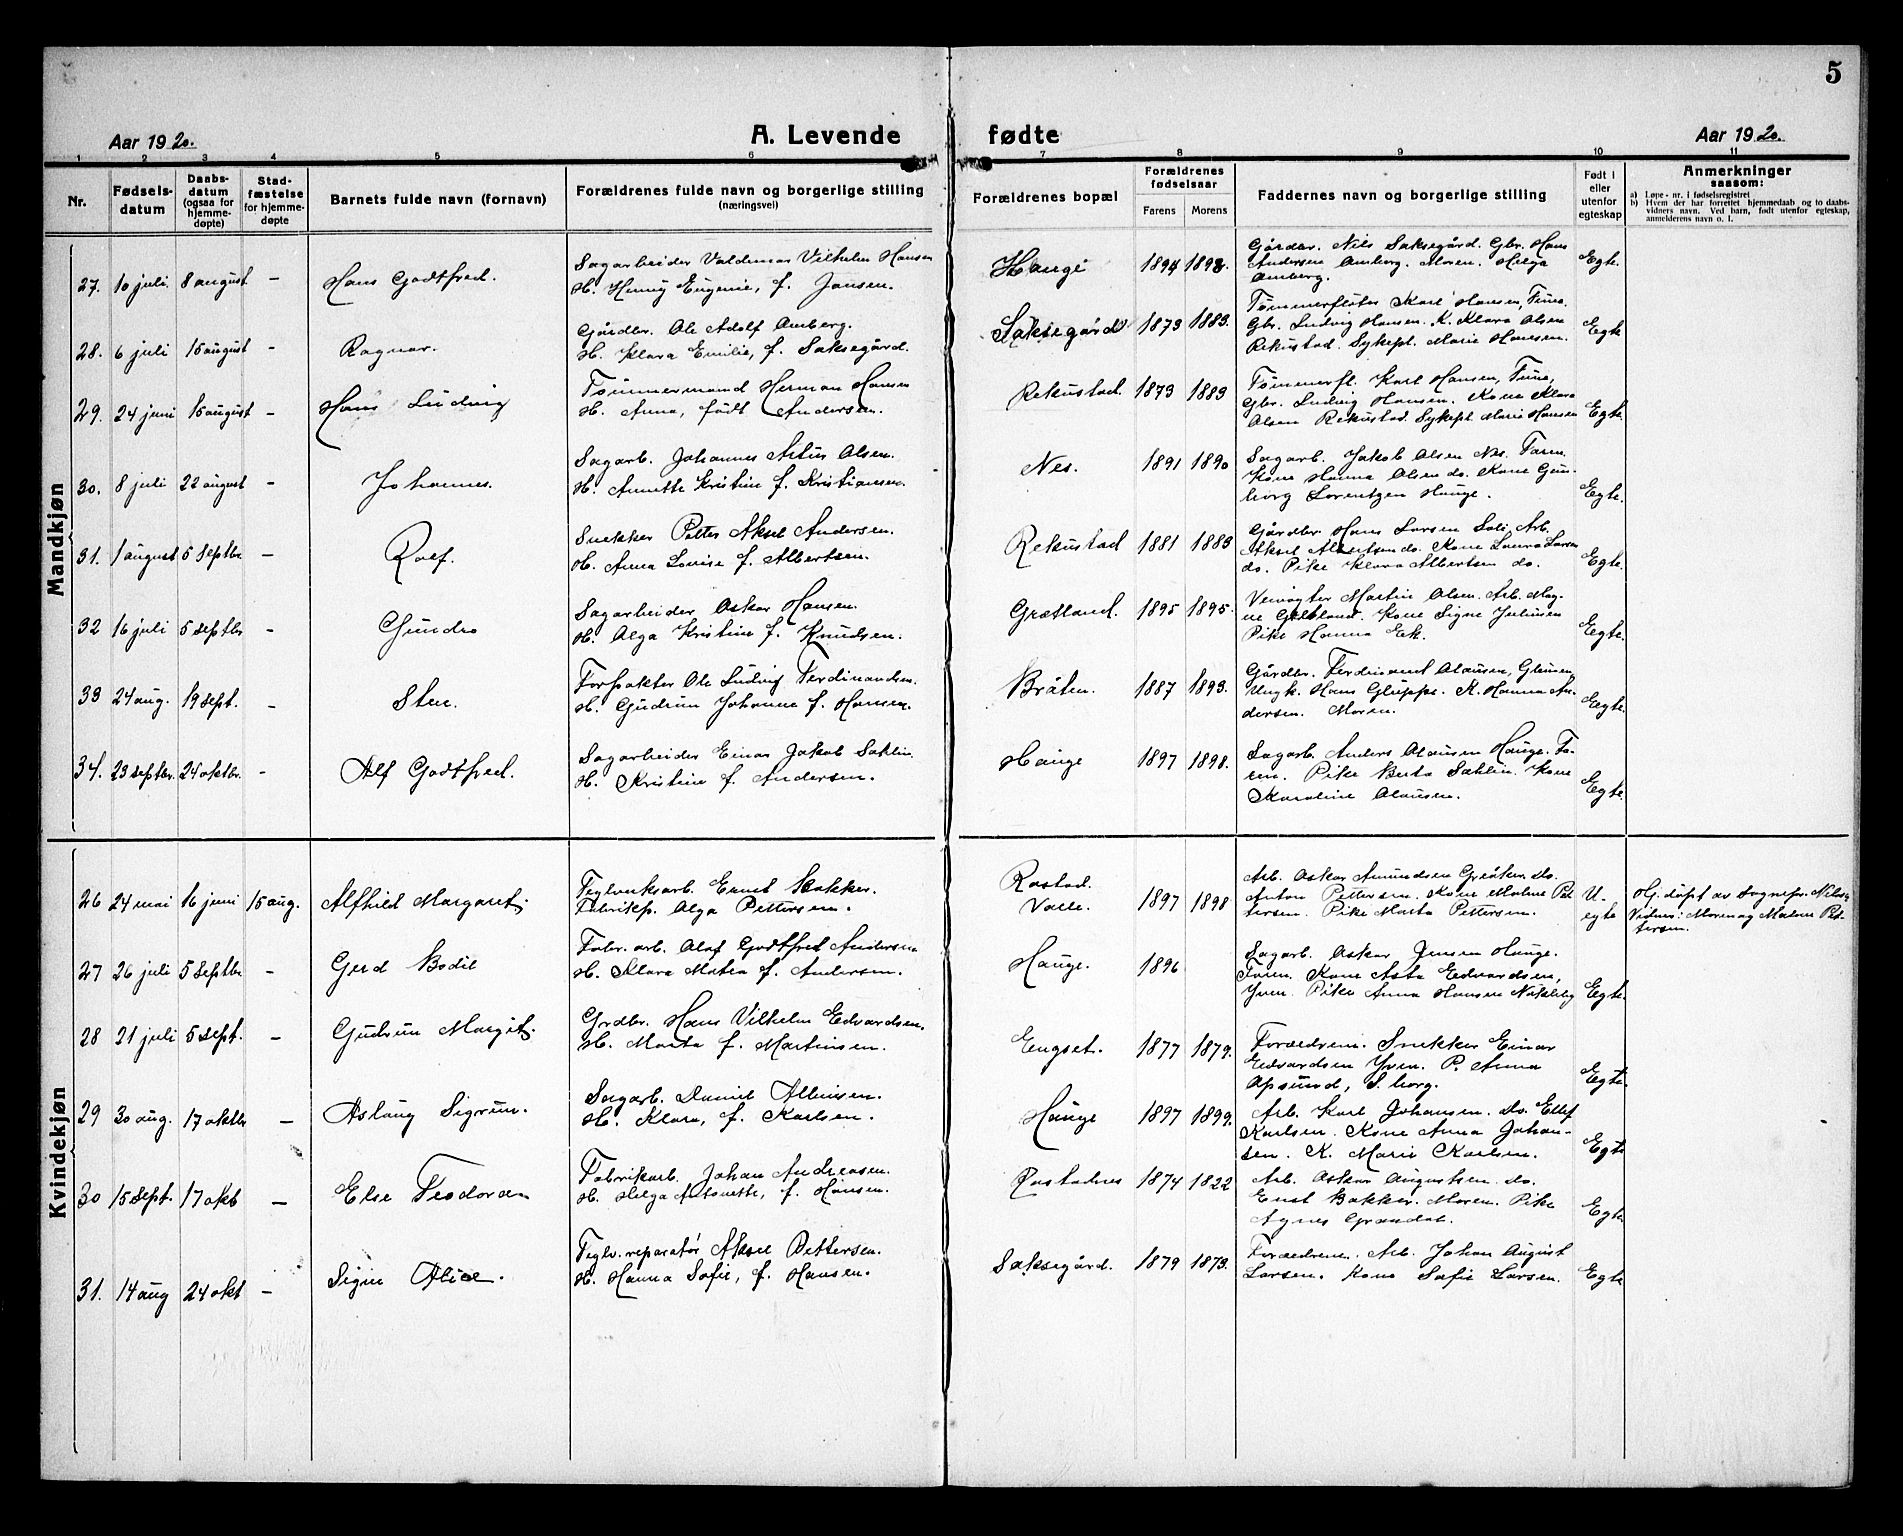 5
Aar 1920.
A. Levende fødte
Aar 1920.
1 2 3 4 5 6 7 8 9 10 11
Nr.
Fødsels-
datum
Daabs-
datum
(ogsaa for
hjemme-
døpte)
Stad-
fæstelse
for hjemme-
døpte
Barnets fulde navn (fornavn)
Forældrenes fulde navn og borgerlige stilling
(næringsvei)
Forældrenes bopæl
Forældrenes
fødselsaar
Farens Morens
Faddernes navn og borgerlige stilling
Født i
eller
utenfor
egteskap
Anmerkninger
saasom:
a) Løpe-nr. i fødselsregistret
b) Hvem der har forrettet hjemmedaab og to daabs-
vidners navn. Ved barn, født utenfor egteskap,
anmelderens navn o. l.
Mandkjøn
27. 10 juli 8 august - Hans Godtfred.
Sagarbeider Valdemar Vilhelm Hansen
H. Henny Eugenie, f. Jansen.
Hauge 1894 1898.
Gårdbr. Nils Saksegård. Gbr. Hans
Andersen Amberg. Moren. Helga
Amberg.
Egte.
28. 6 juli 15 august - Ragnar.
Gårdbr. Ole Adolf Amberg.
H. Klara Emilie, f. Saksegård.
Saksegård 1873 1883.
Tømmerfløter Karl Hansen, Tune.
Gbr. Ludvig Hansen. K. Klara Olsen
Rekustad. Sykepl. Marie Hansen.
Egte
29. 24 juni 15 august - Hans Ludvig
Tømmermand Herman Hansen
H. Anna, født Andersen.
Rekustad. 1873 1883
Tømmerfl. Karl Hansen, Tune,
Gbr. Ludvig Hansen. Kone Klara
Olsen Rekustad. Sykepl. Marie Hansen
Egte.
30. 8 juli 22 august - Johannes.
Sagarb. Johannes Artur Olsen.
H. Annette Kristine f. Kristiansen.
Nes. 1891 1890
Sagarb. Jakob Olsen Nes. Faren.
Kone Hanna Olsen do. Kone Gun-
borg Lorentzen Hauge.
Egte.
31. 1 august 5 septbr - Rolf.
Snekker Petter Aksel Andersen.
H. Anna Lovise f. Albertsen.
Rekustad 1881 1883
Gårdbr. Hans Larsen Soli. Arb.
Aksel Albertsen do. Kone Laura Larsen
do. Pike Klara Albertsen do.
Egte.
32 16 juli 5 septbr -
Sagarbeider Oskar Hansen.
H. Olga Kristine f. Knudsen.
Grætland. 1895 1895.
Veivogter Martin Olsen. Arb. Mag-
ne Grætland. Kone Signe Julinsen
Pike Hanna Eek.
Egte.
33 24 aug. 19 sept. - Sten.
Forpakter Ole Ludvig Ferdinandsen.
H. Gudrun Johanne f. Hansen.
Bråten. 1887 1893.
Gårdbr. Ferdinand Olausen, Glemmen,
Ungk. Hans Gluppe. K. Hanna An-
dersen. Moren.
Egte.
34. 23 septbr. 24 oktbr. - Alf Godtfred.
Sagarbeider Einar Jakob Sahlin.
H. Kristine f. Andersen.
Hauge 1897 1898.
Sagarb. Anders Olausen Hauge. Fa-
ren. Pike Berta Sahlin. Kone
Karoline Olausen.
Egte.
Kvindekjøn
26 24 mai 16 juni 15 aug. Alfhild Margaret.
Teglverksarb. Ernst Bakker.
Fabrikp. Olga Pettersen.
Rostad.
Valle. 1897 1898
Arb. Oskar Amundsen Greåker. do.
Anton Pettersen. Kone Malene Pet
tersen. Pike Marta Pettersen.
U-
egte
Hj. døpt av sognepr.
Vidner: Moren og Malene Pet-
tersen.
27 26 juli 5 septbr - Gerd Bodil
Fabr. arb. Olaf Godtfred Andersen
H. Klara Matea f. Andersen.
Hauge. 1896
Sagarb. Oskar Jensen Hauge.
Faren. Kone Asta Edvardsen,
Yven. Pike Anna Hansen
Egte.
28 21 juli 5 sept. - Gudrun Margit.
Grdbr. Hans Vilhelm Edvardsen.
H. Marta f. Martinsen.
Engset. 1877 1879.
Forældrene. Snekker Einar
Edvardsen Yven. P. Anna
Opsund, S.borg.
Egte.
29 30 aug. 17 oktbr - Aslaug Sigrun.
Sagarb. Daniel Albinsen.
H. Klara, f. Karlsen.
Hauge 1897 1899.
Arb. Karl Johansen. do. Ellef
Karlsen. Kone Anna Johan-
sen. K. Marie Karlsen.
Egte
30 15 sept. 17 okb - Else Teodora
Fabrikarb. Johan Andreasen.
H. Helga Antonette, f. Hansen.
Rostadnes 1874 1822
Arb. Oskar Augustsen. do.
Ernst Bakker. Moren. Pike
Agnes Grøndal.
Egte
31. 14 aug 24 okt - Signe Alice.
Teglv. reparatør Aksel Pettersen.
H. Hanna Sofie, f. Hansen.
Saksegård. 1879 1873.
Forældrene. Arb. Johan August
Larsen. Kone Sofie Larsen.
Egte